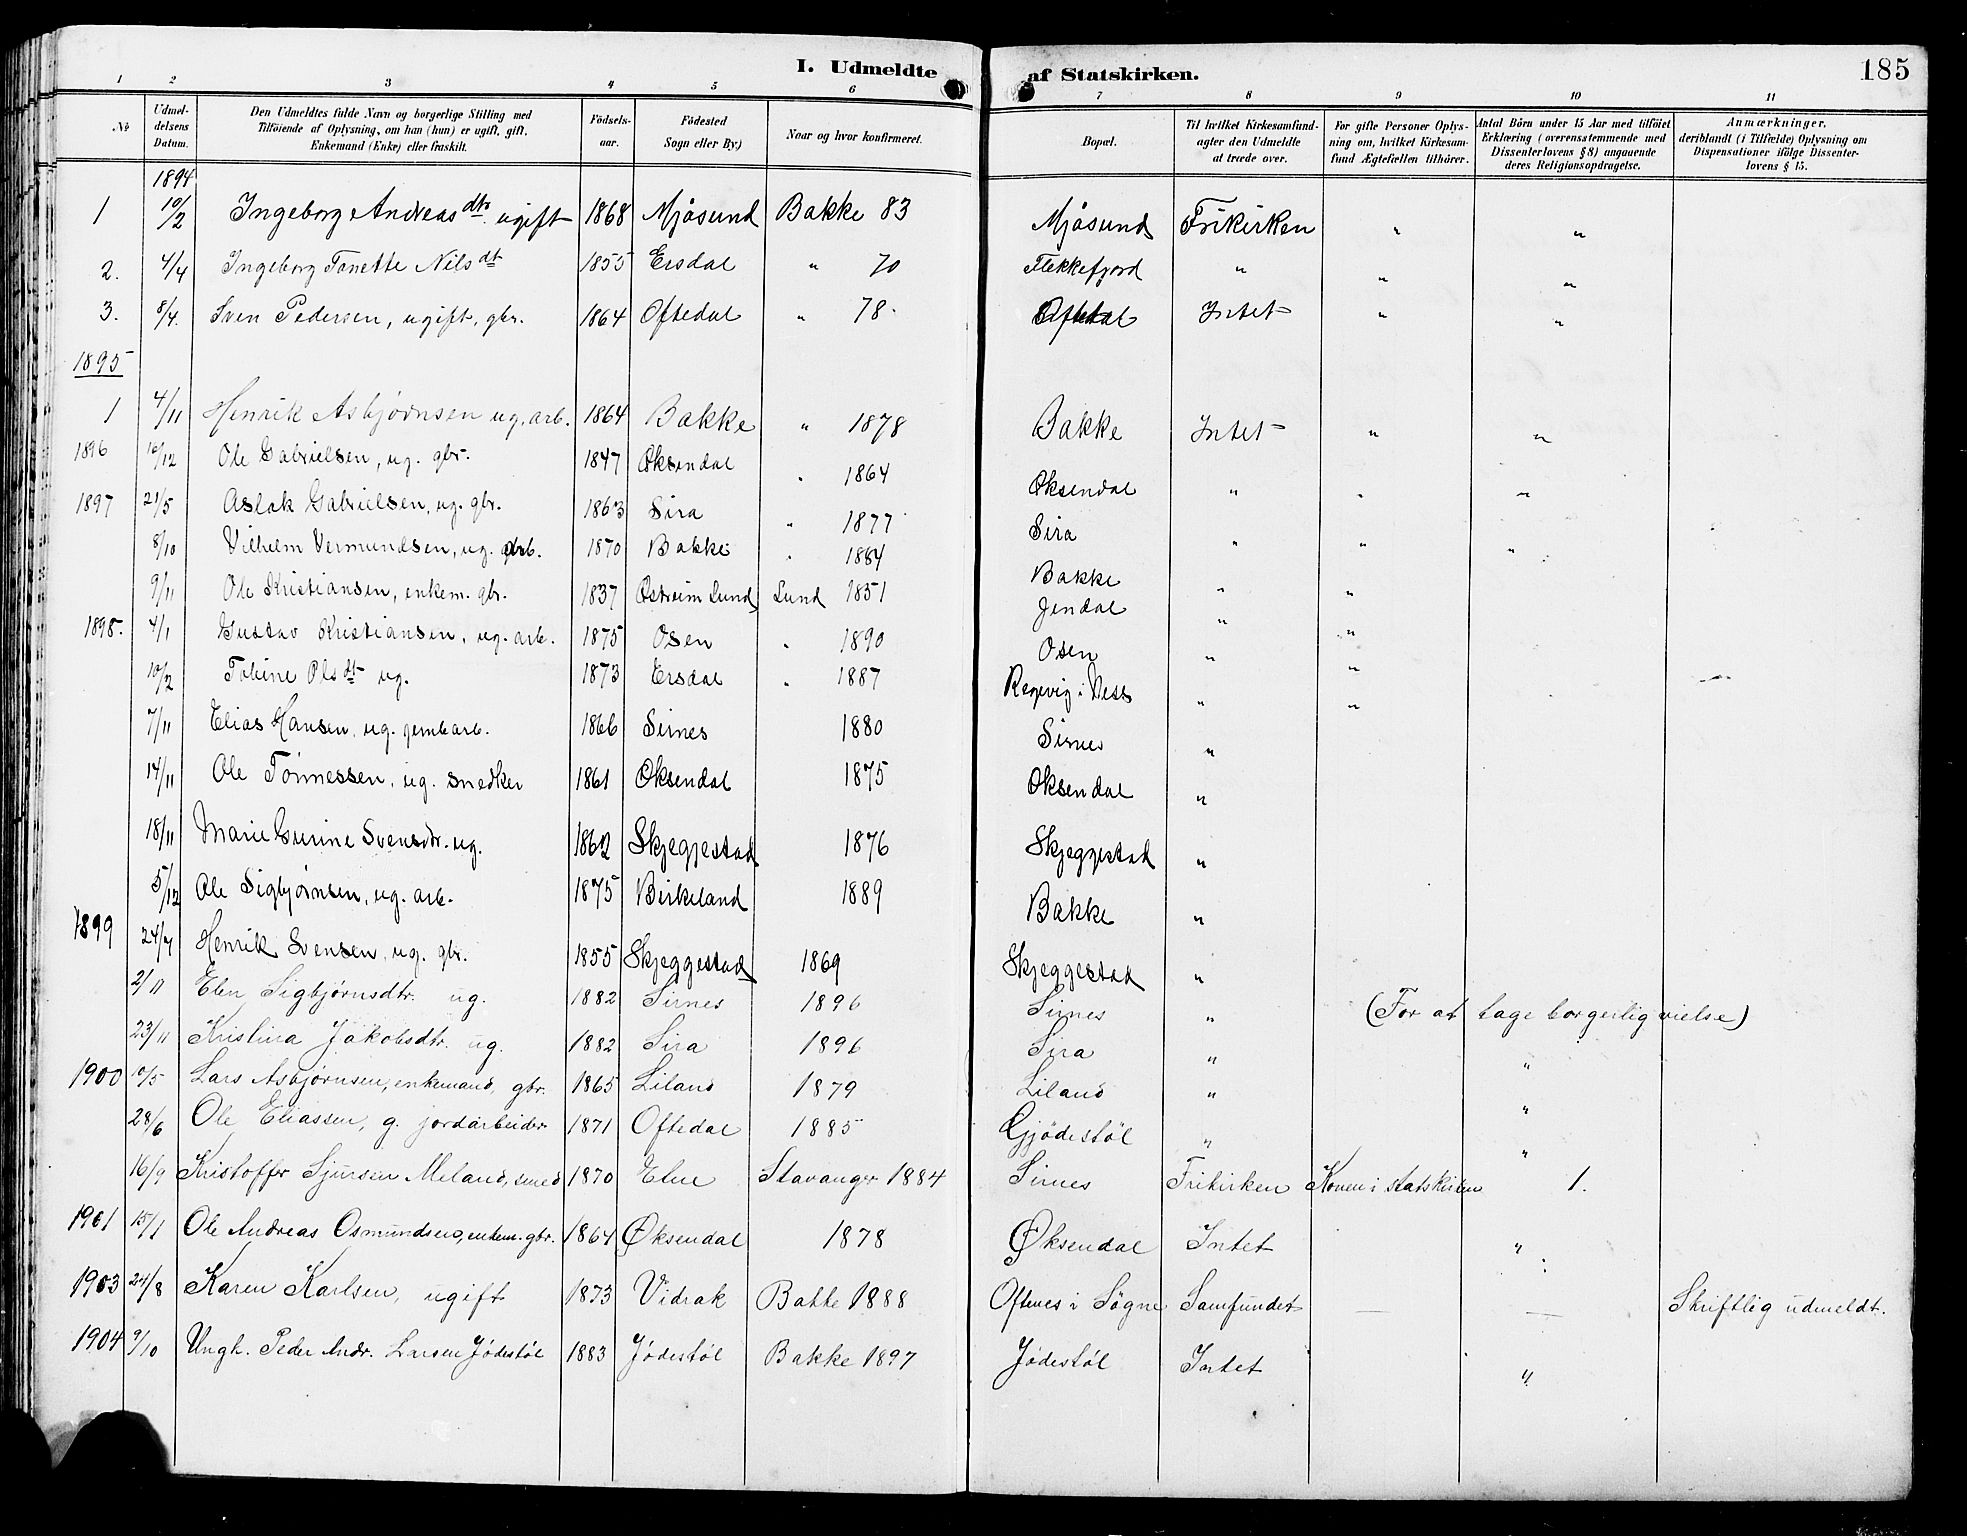 I. Udmeldte af Statskirken. 185
1 2 3 4 5 6 7 8 9 10 11
№ | Udmeldelsens Datum. | Den Udmeldtes fulde Navn og borgerlige Stilling med Tilføiende af Oplysning, om han (hun) er ugift, gift, Enkemand (Enke) eller fraskilt. | Fødselsaar. | Fødested Sogn eller By) | Naar og hvor konfirmeret. | Bopæl. | Til hvilket Kirkesamfund agter den Udmeldte at træde over. | For gifte Personer Oplysning om, hvilket Kirkesamfund Ægtefællen tilhører. | Antal Børn under 15 Aar med tilføiet Erklæring (overensstemmende med Dissenterlovens § 8) angaaende deres Religionsopdragelse. | Anmærkninger, deriblandt (i Tilfælde) Oplysning om Dispensationer ifølge Dissenterlovens § 15.
1894
1 10/2 Ingeborg Andreasdtr ugift 1868 Mjåsund Bakke 83 Mjåsund Frikirken " "
2. 4/4 Ingeborg Tonette Nilsdt 1855 Ersdal " 70 Flekkefjord " " "
3. 8/4. Sven Pedersen, ugift, gbr. 1864 Oftedal " 78. Oftedal Intet " "
1895
1 4/11 Henrik Asbjørnsen ug. arb. 1864 Bakke " 1878 Bakke Intet " "
1896 10/12 Ole Gabrielsen, ug. gbr. 1847 Øksendal " 1864 Øksendal " " "
1897 21/5 Aslak Gabrielsen, ug. gbr. 1863 Sira " 1877 Sira " " "
8/10 Vilhelm Vermundsen, ug. arb. 1870 Bakke " 1884 Bakke " "
9/11 Ole Kristiansen, enkem. gbr. 1837 Østreim Lund Lund 1851 Jendal " "
1898. 4/1 Gustav Kristiansen, ug. arb. 1875 Osen " 1890 Osen " "
10/2 Tobine Olsdt ug. 1873 Ersdal " 1887 Regevig i Ness " "
7/11 Elias Hansen, ug. jernbarb. 1866 Sirnes 1880 Sirnes "
14/11 Ole Tönnessen, ug. snedker 1861 Øksendal 1875 Øksendal "
18/11 Marie Gurine Svensdr. ug. 1862 Skjeggestad 1876 Skjeggestad "
5/12 Ole Sigbjörnsen, ug. arb. 1875 Birkeland 1889 Bakke "
1899 24/7 Henrik Svensen, ug. gbr. 1855 Skjeggestad 1869 Skjeggestad "
2/11 Elen Sigbjørnsdtr. ug. 1882 Sirnes 1896 Sirnes " (For at tage borgerlig vielse)
23/11 Kristina Jakobsdtr. ug. 1882 Sira 1896 Sira " "
1900 10/5 Lars Asbjørnsen, enkemand, gbr. 1865 Liland 1879 Liland " "
28/6 Ole Eliassen, g. jordarbeider 1871 Oftedal 1885 Gjødestøl " "
16/9 Kristoffer Sjursen Meland, smed 1870 Elne Stavanger 1884 Sirnes Frikirken Konen i statskirken 1.
1901 15/1 Ole Andreas Osmundsen, enkem. gbr. 1864 Øksendal 1878 Øksendal Intet "
1903 24/8 Karen Karlsen, ugift 1873 Vidrak Bakke 1888 Oftenes i Søgne Samfundet — — Skriftlig udmeldt.
1904 9/10 Ungk. Peder Andr. Larsen Jødestøl 1883 Jødestøl Bakke 1897 Jødestøl Intet "